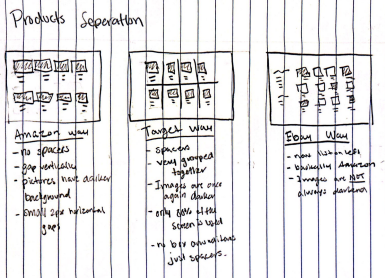 Products Separation
Amazon way
- no spacers
- gap vertically
- pictures have darker
background
- small 2px horizontal
gaps
Target way
- spacers
- very grouped
together
- Images are once
again darker
- only 80% of the
screen is used
- no box
just spacers.
Ebay Way
- now
- basically Amazon
- Images are NOT
always darkend